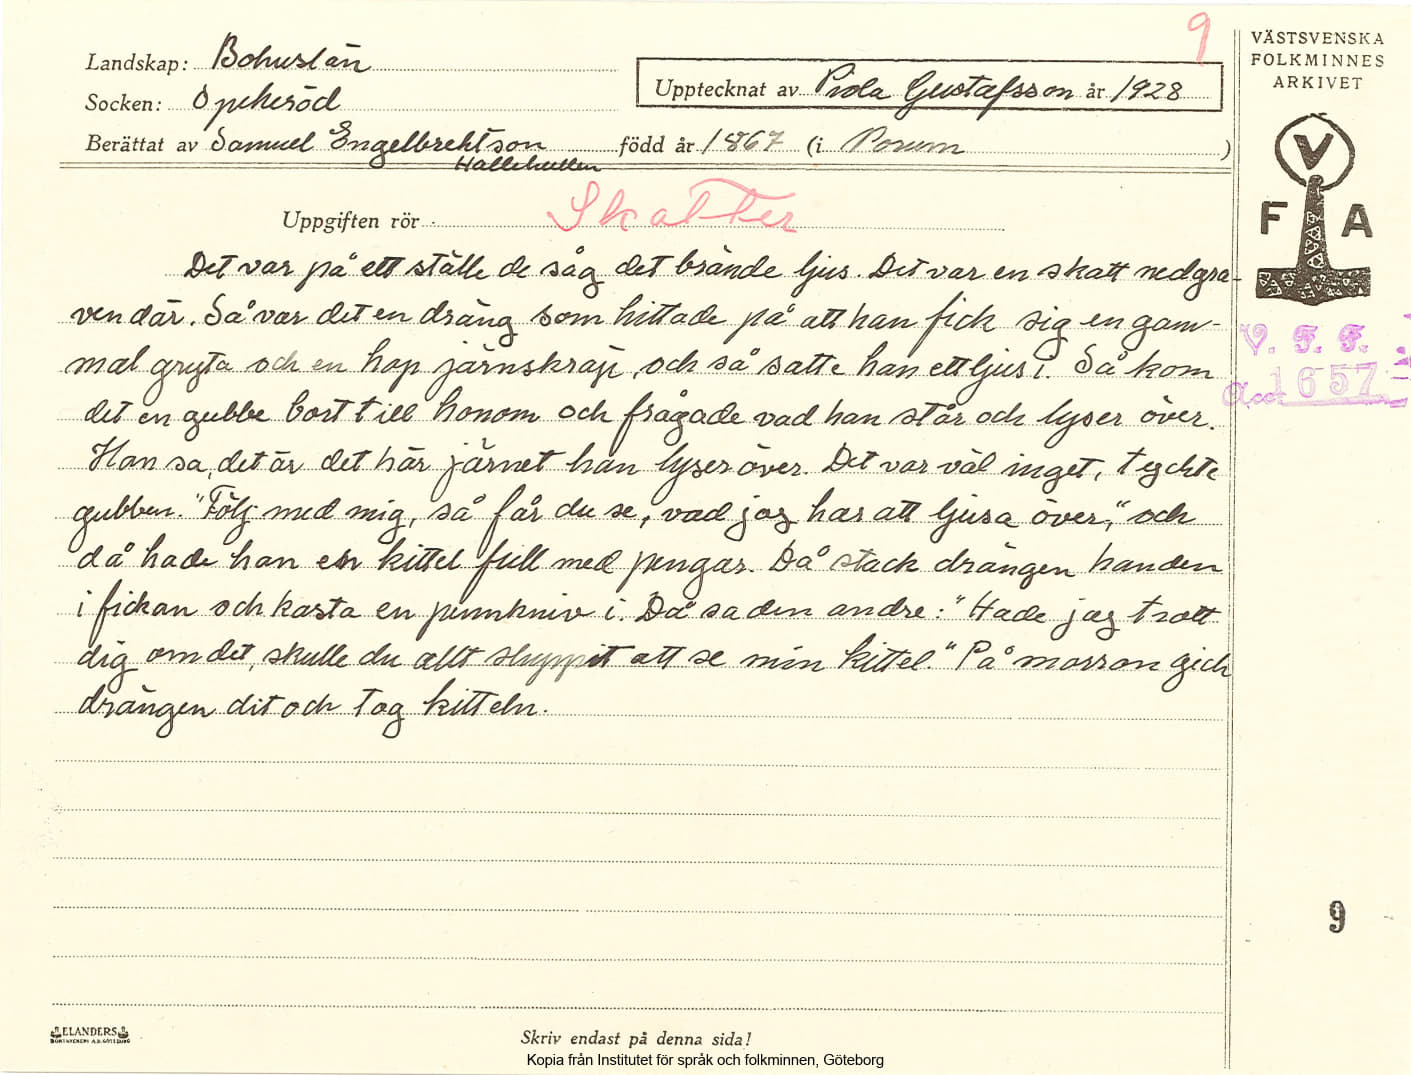 9
VÄSTSVENSKA
FOLKMINNES
ARKIVET
Landskap: Bohuslän
Upptecknat av Piola Gustafsson år 1928
Socken: Spekeröd
Berättat av Samuel Engelbrektson född år 1867 (i Porum)
Hallehullen
V
F A
Uppgiften rör Skatter
Det var på ett ställe de såg det brände ljus. Det var en skatt nedgra-
ven där. Så var det en dräng som hittade på att han fick sig en gam-
mal gryta och en hop järnskrap, och så satte han ett ljus i. Så kom
det en gubbe bort till honom och frågade vad han står och lyser över.
Han sa, det är det här järnet han lyser över. Det var väl inget, tyckte
gubben. "Följ med mig, så får du se, vad jag har att ljusa över," och
då hade han en kittel full med pengar. Då stack drängen handen
i fickan och kasta en pennkniv i. Då sa den andre: "Hade jag trott
dig om det, skulle du allt sluppit att se min kittel." På morson gick
drängen dit och tog kitteln.
V. F. F.
Acc. 1657
9
ELANDERS
BOKTRYCKERI A.B. GÖTEBORG
Skriv endast på denna sida!
Kopia från Institutet för språk och folkminnen, Göteborg